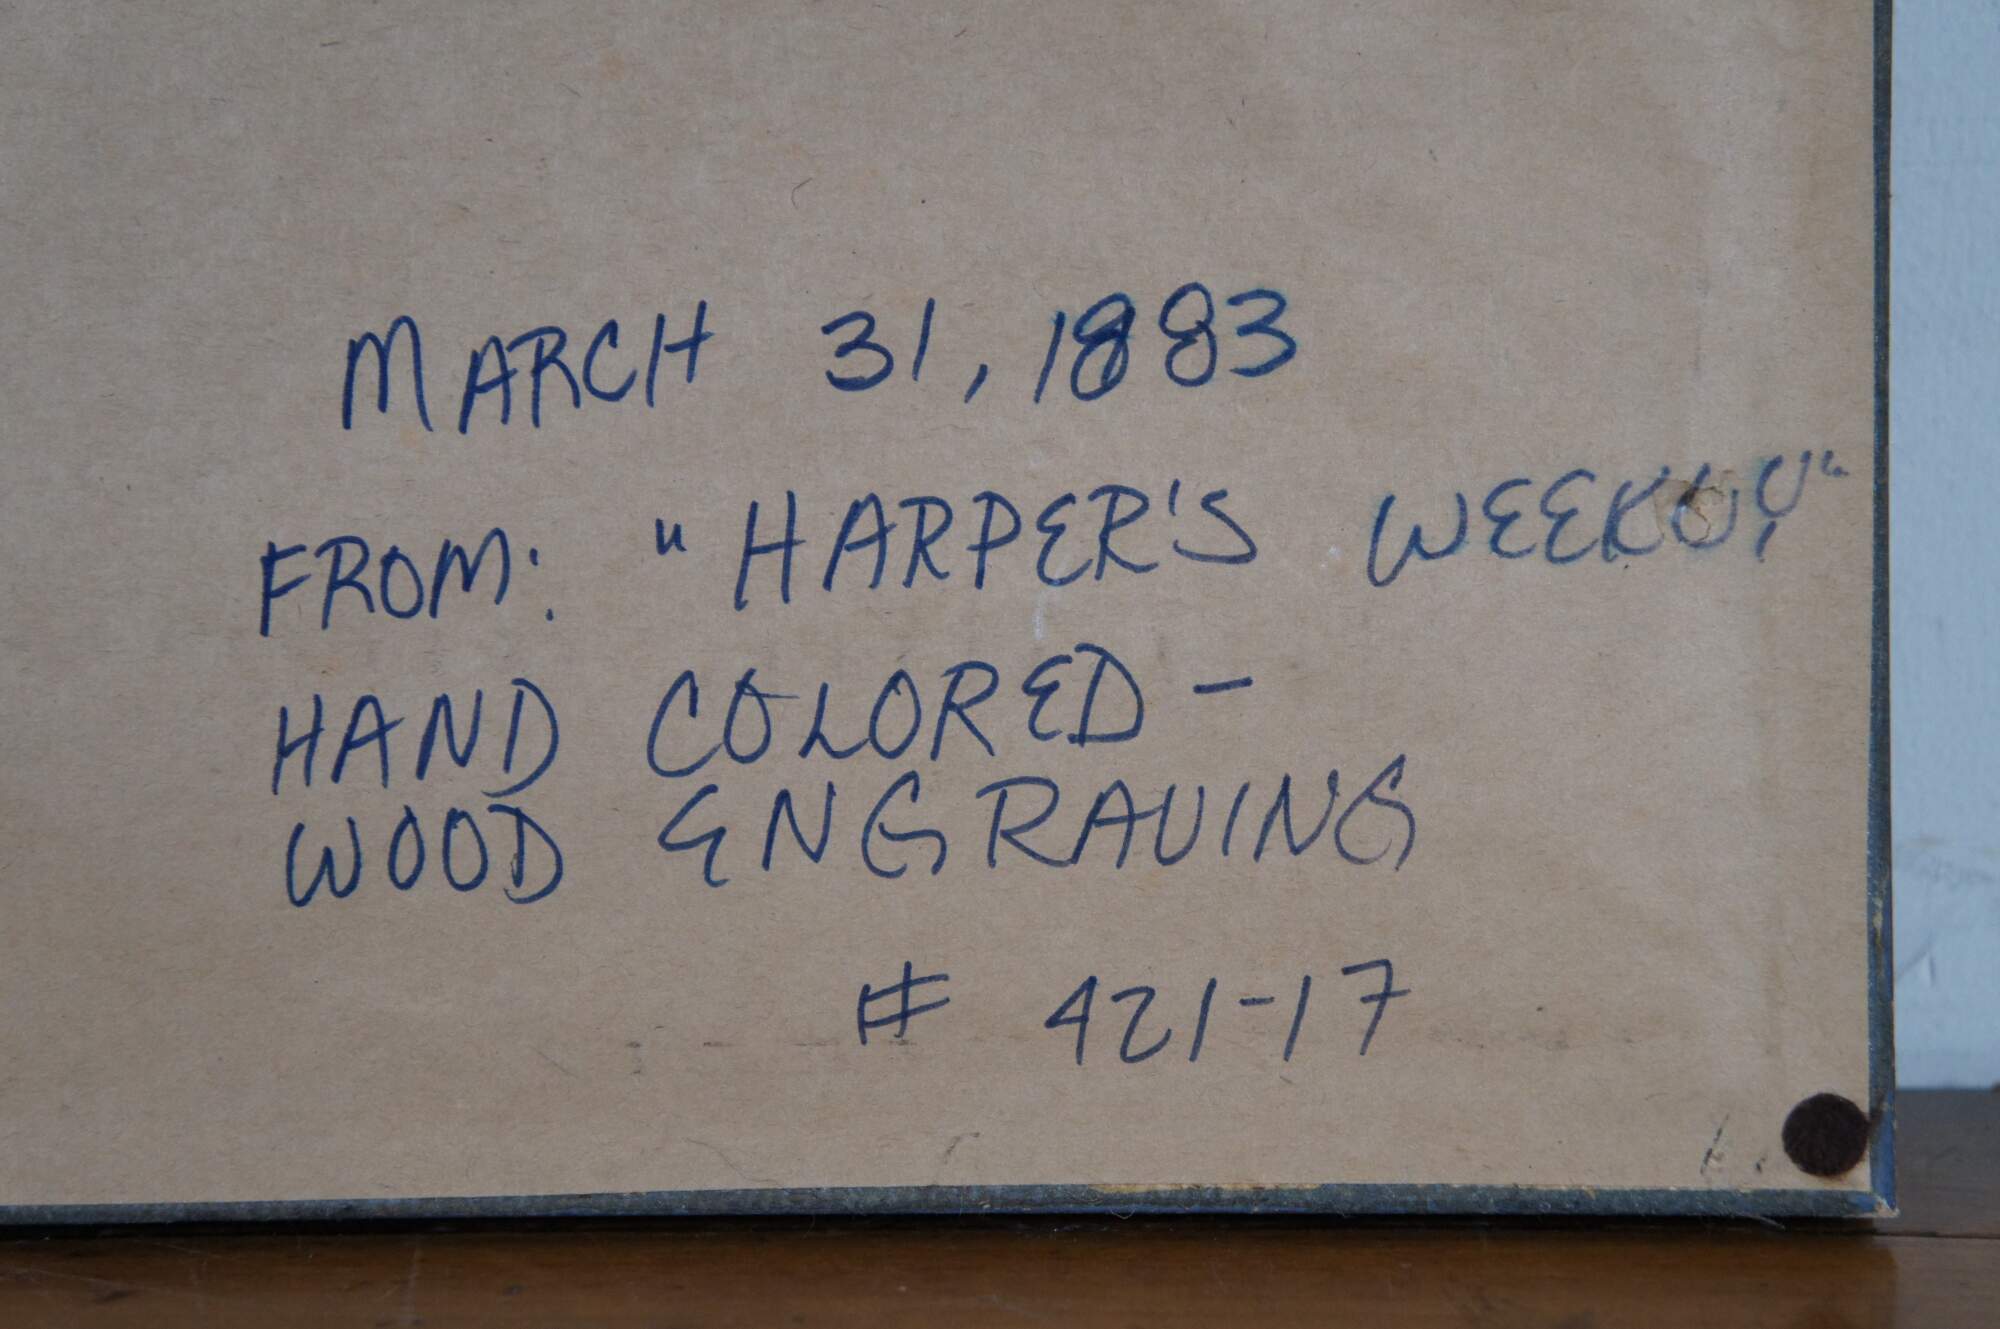 MARCH 31, 1883
FROM: "HARPER'S WEEKLY"
HAND COLORED -
WOOD ENGRAVING
# 421-17